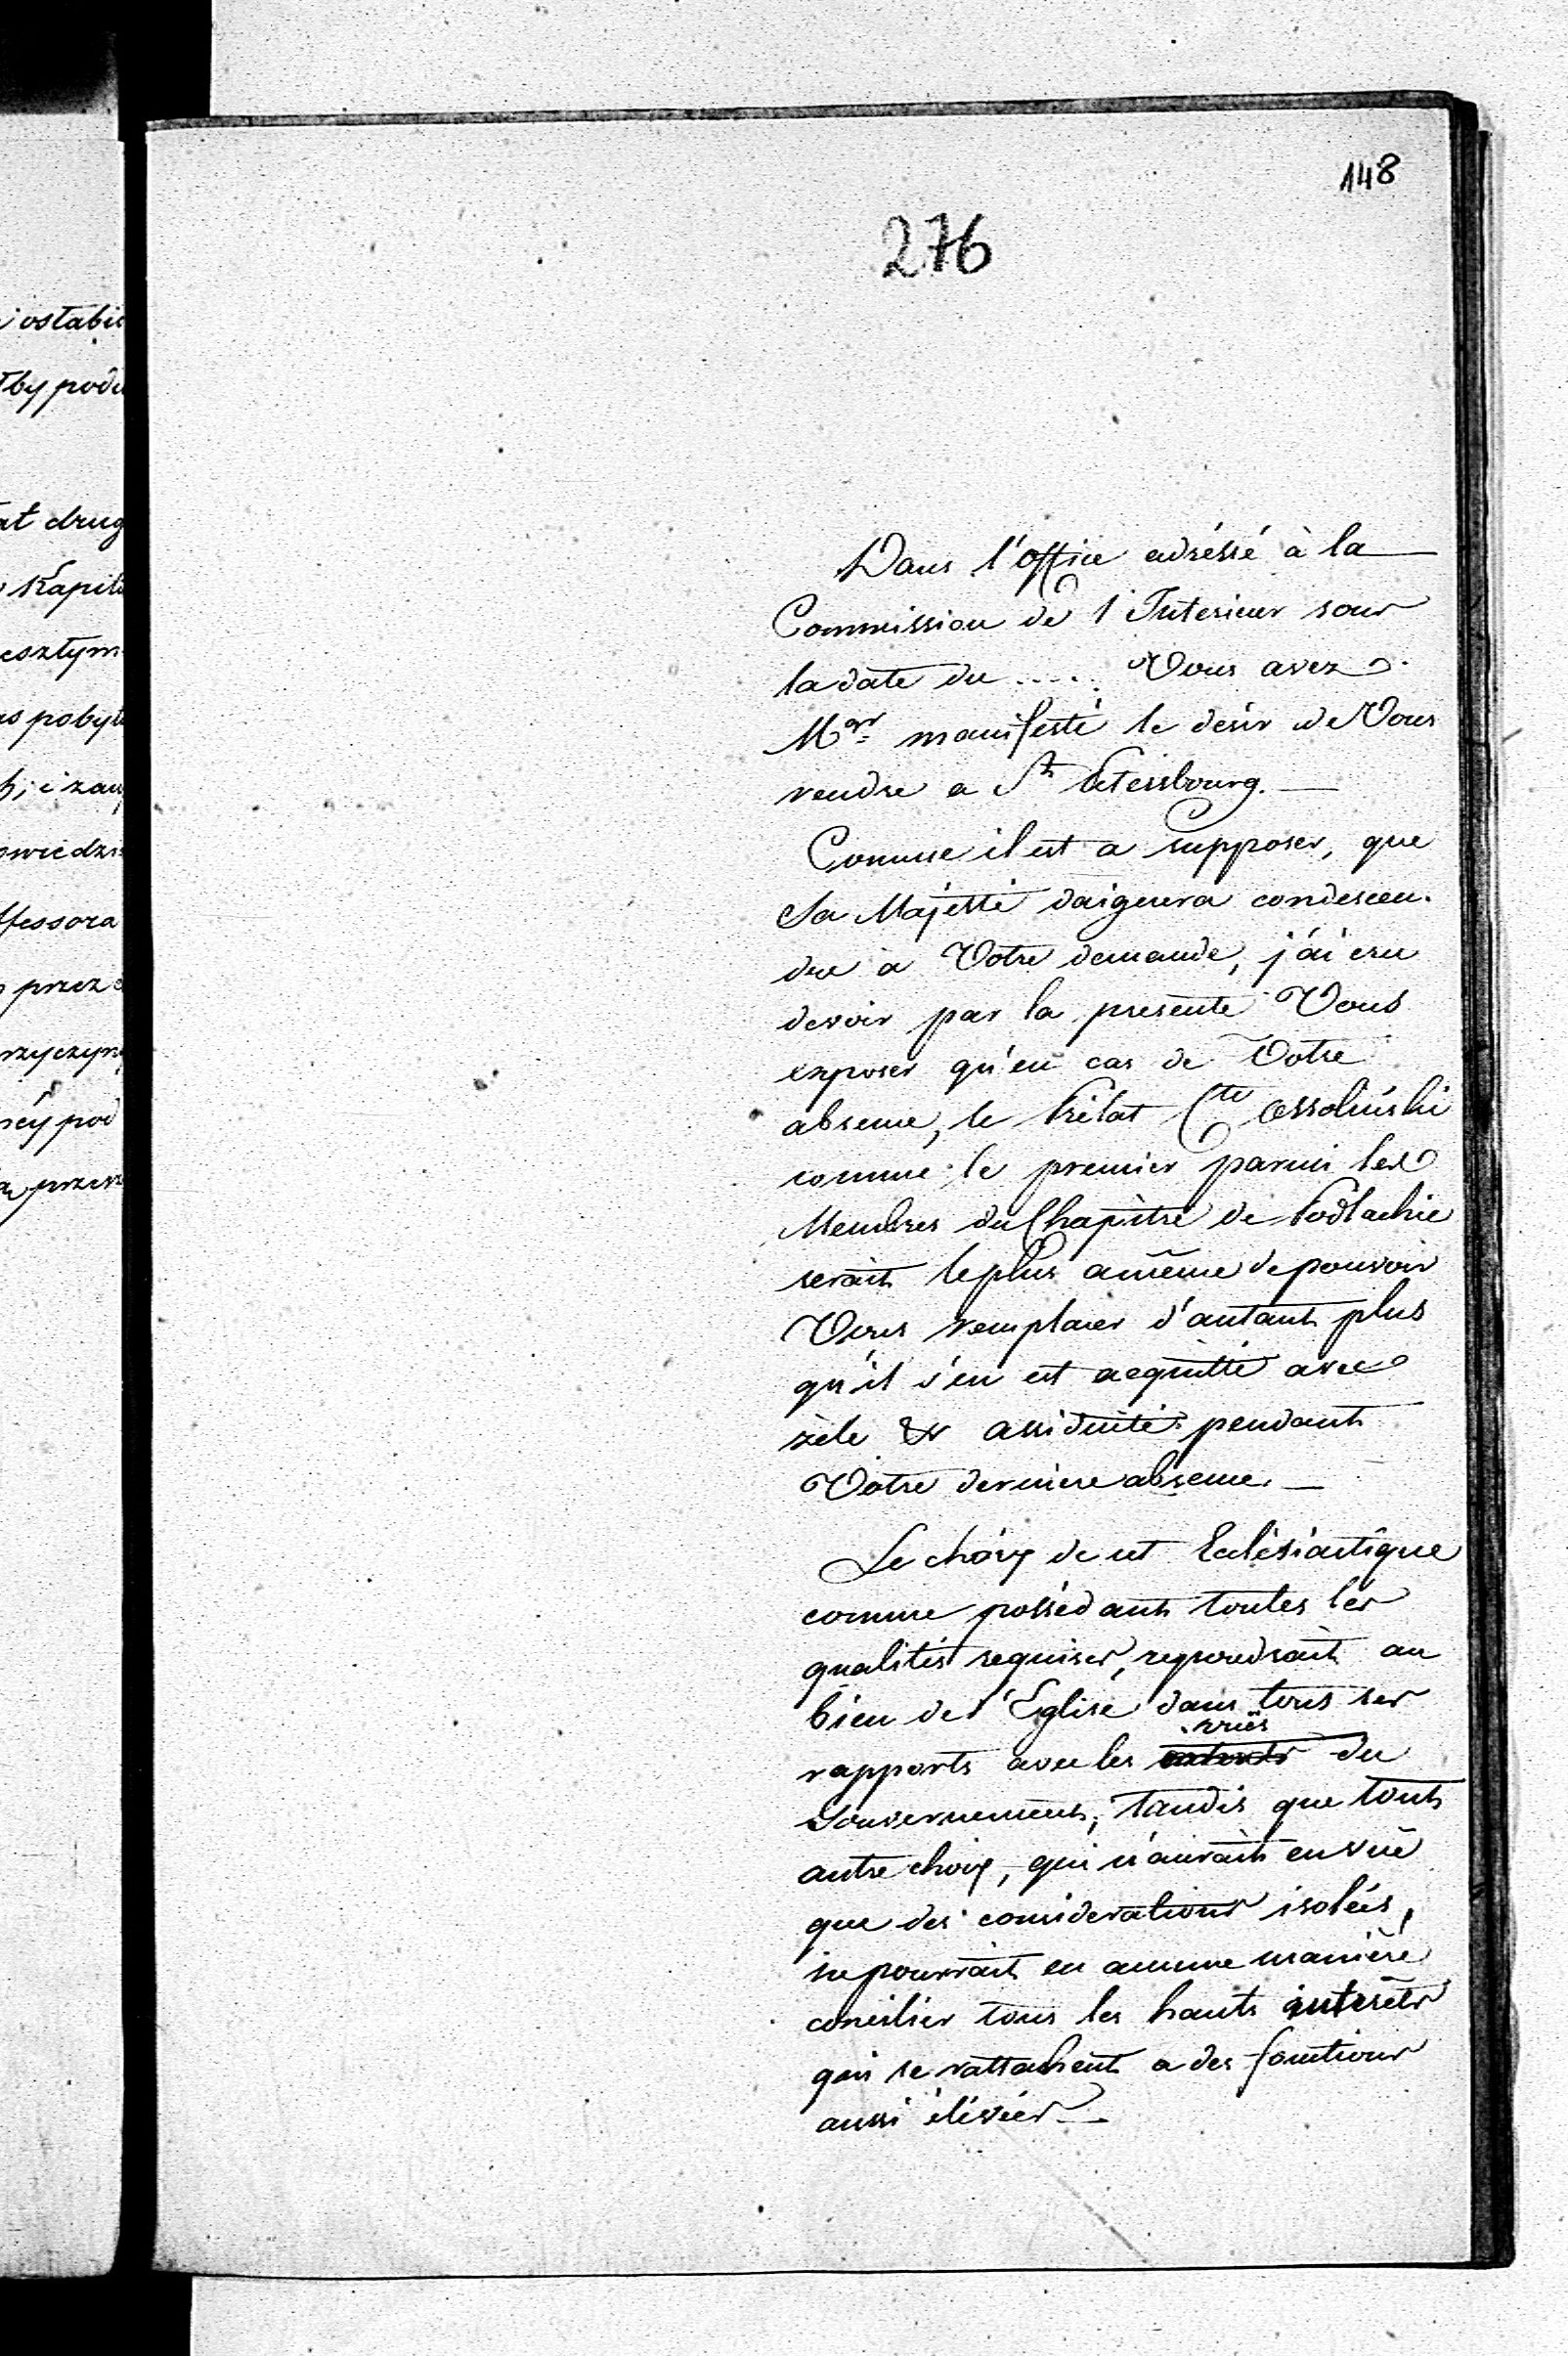 148
276
Dans l'office adréssé à la
Commission de l'Interieur sous
la date du ..... Vous avez
Mgr manifesté le desir de Vous
rendre a St Petersbourg. —
Comme il est a supposer, que
Sa Majesté daignera condescen-
dre a Votre demande, j'ai cru
devoir par la presente Vous
exposer qu'en cas de Votre
absence, le Prélat Cte Ossoliński
comme le premier parmi les
Membres du Chapitre de Podlachie
serait le plus a même de pouvoir
Vous remplacer d'autant plus
qu'il s'en est acquitté avec
zèle & assiduité pendant
Votre derniere absence. —
Le choix de cet Eclésiastique
comme possédant toutes les
qualités requises, repondrait au
bien de l'Eglise dans tous ses
vuës
rapports avec les du
Gouvernement, tandis que tout
autre choix, qui n'aurait en vuë
que des considerations isolées,
ne pourrait en aucune manière
concilier tous les hauts interêts
qui se rattachent a des fonctions
aussi élévées —
ostabi
by pod
at drug
Kapit
esztym
as poby
h; i zau
owiedz
ffessora
przez
rzyczyn
éy pod
przez